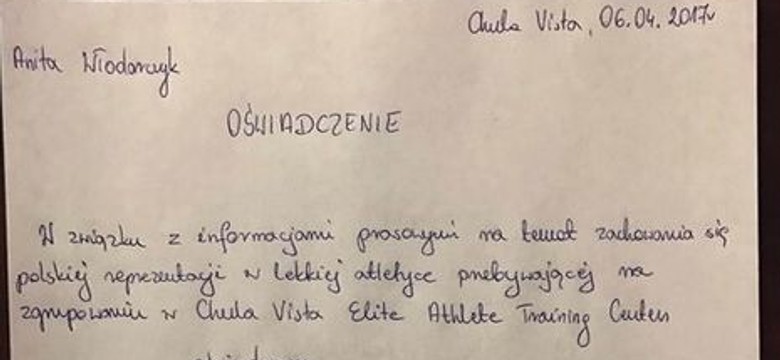 Chula Vista, 06.04.2017r
Anita Włodarczyk
OŚWIADCZENIE
W związku z informacjami prasowymi na temat zachowania się
polskiej reprezentacji w lekkiej atletyce przebywającej na
zgrupowaniu w Chula Vista Elite Athlete Training Center